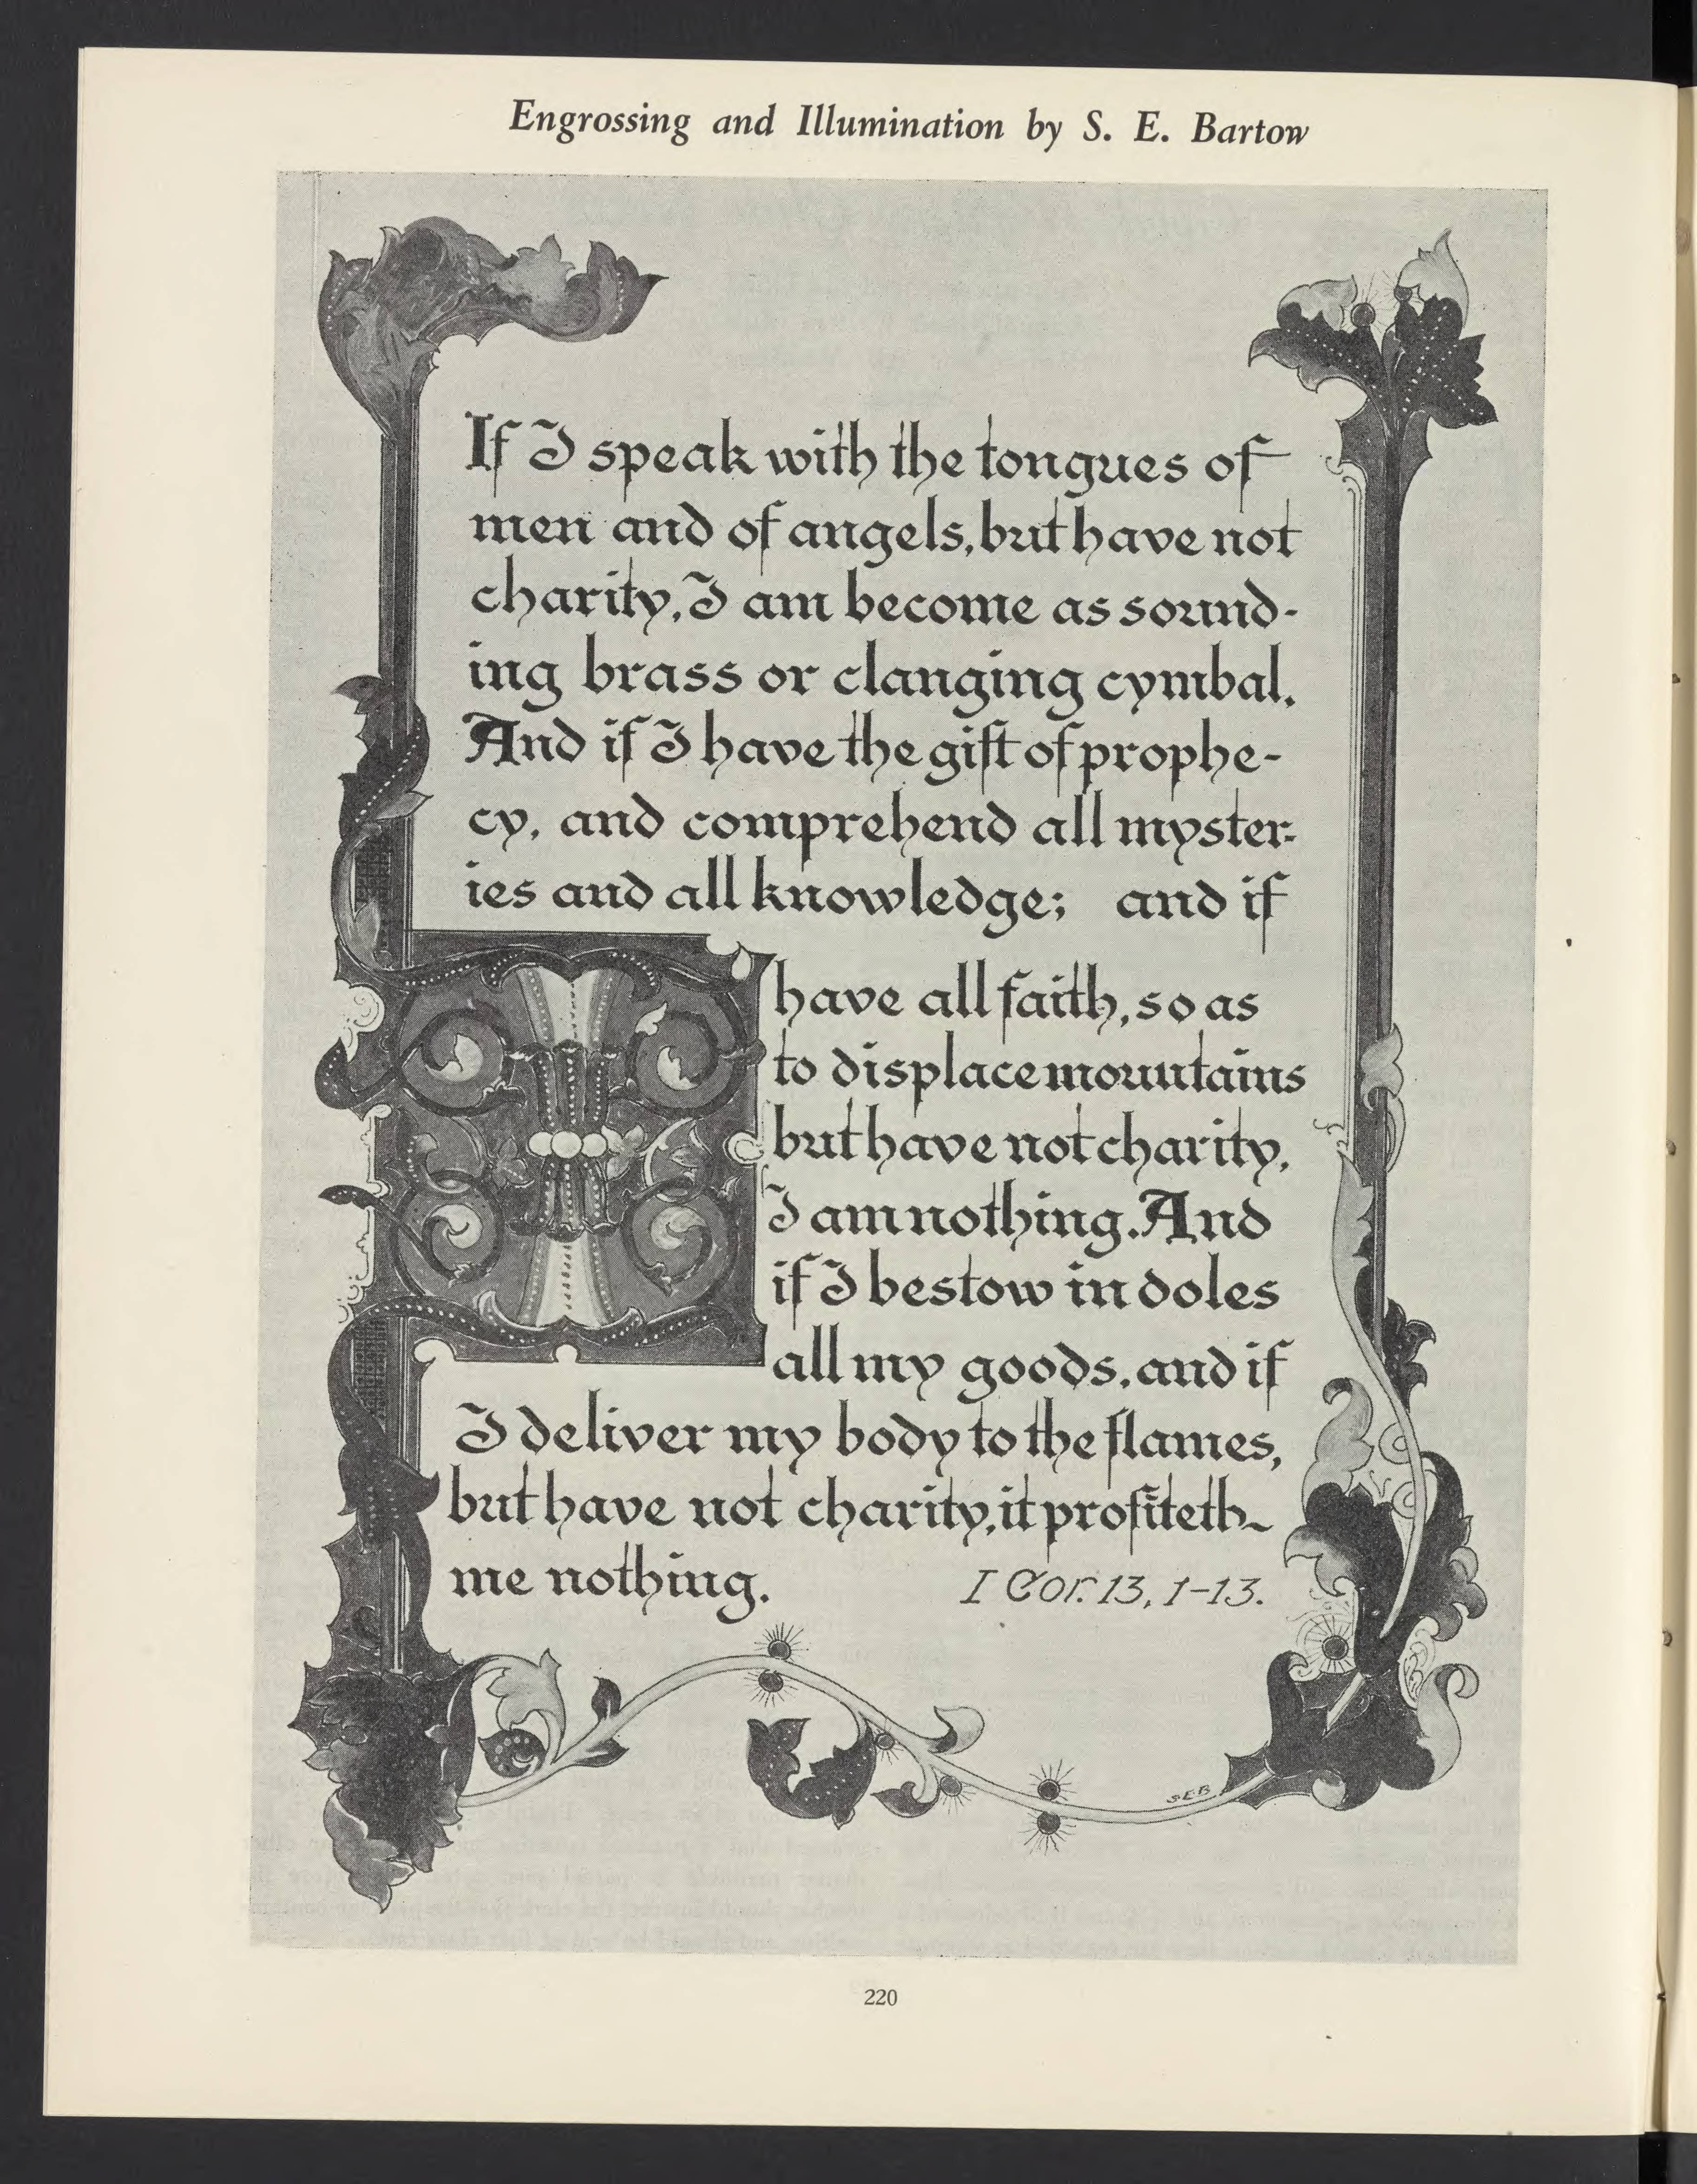 Engrossing and Illumination by S. E. Bartow
If I speak with the tongues of
men and of angels, but have not
charity, I am become as sound-
ing brass or clanging cymbal.
And if I have the gift of prophe-
cy, and comprehend all myster-
ies and all knowledge; and if
I have all faith, so as
to displace mountains
but have not charity,
I am nothing. And
if I bestow in doles
all my goods, and if
I deliver my body to the flames,
but have not charity, it profiteth
me nothing. I Cor. 13, 1-13.
SEB.
220